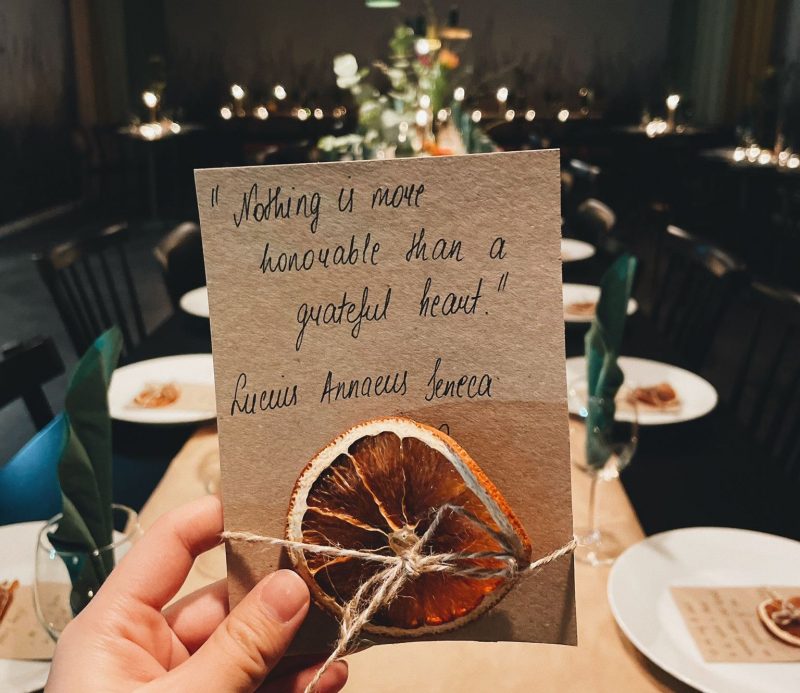 " Nothing is more
honourable than a
grateful heart."
Lucius Annaeus Seneca